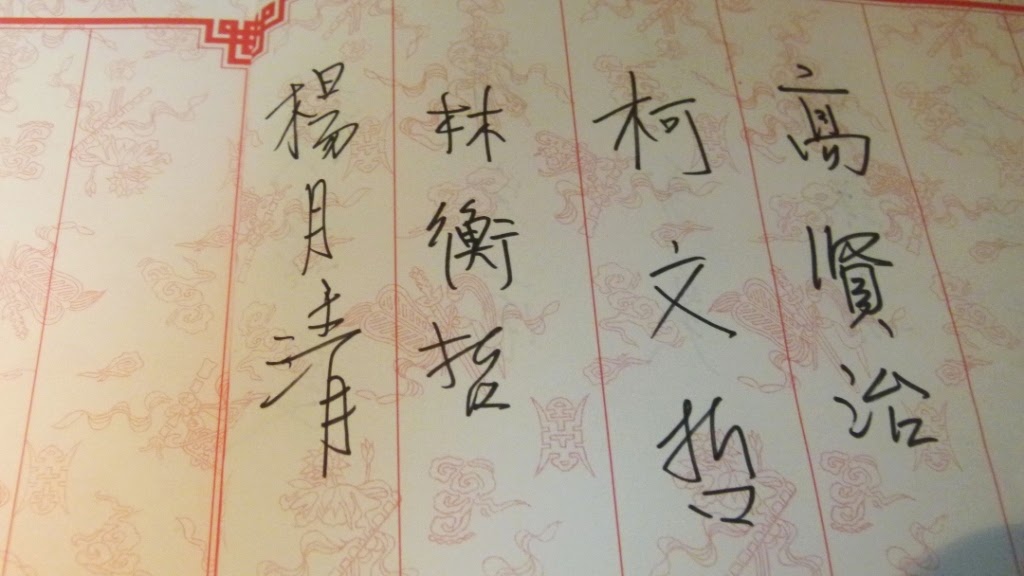 高賢治
柯文哲
林衡哲
楊月清